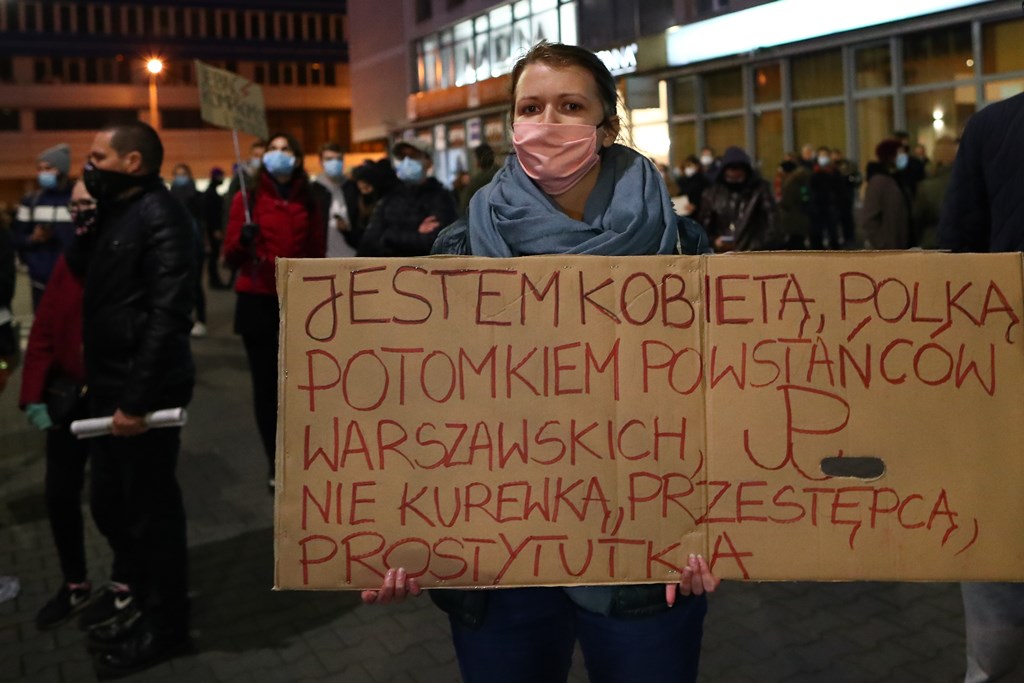 JESTEM KOBIETĄ, POLKĄ
POTOMKIEM POWSTAŃCÓW
WARSZAWSKICH,
NIE KUREWKĄ, PRZESTĘPCĄ,
PROSTYTUTKĄ